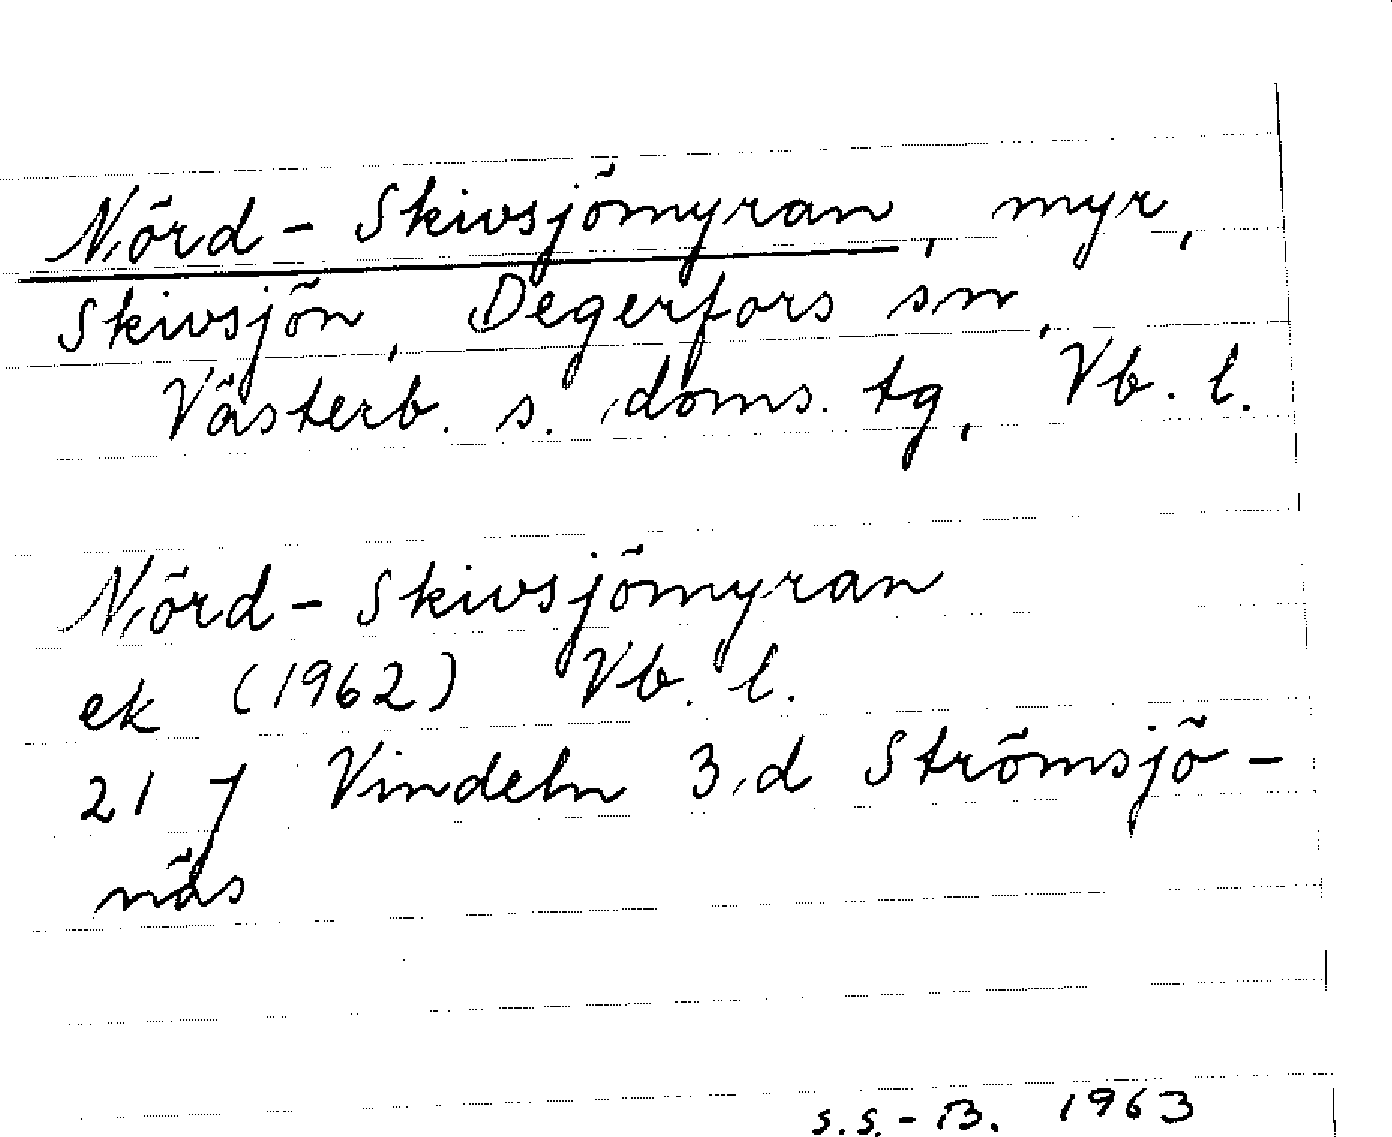 Nörd-Skivsjömyran, myr,
Skivsjön, Degerfors sn,
Västerb. s. doms. tg, Vb. l.
Nörd-Skivsjömyran
ek (1962) Vb. l.
21 J Vindeln 3 d Strömsjö-
näs
S.S.-B. 1963